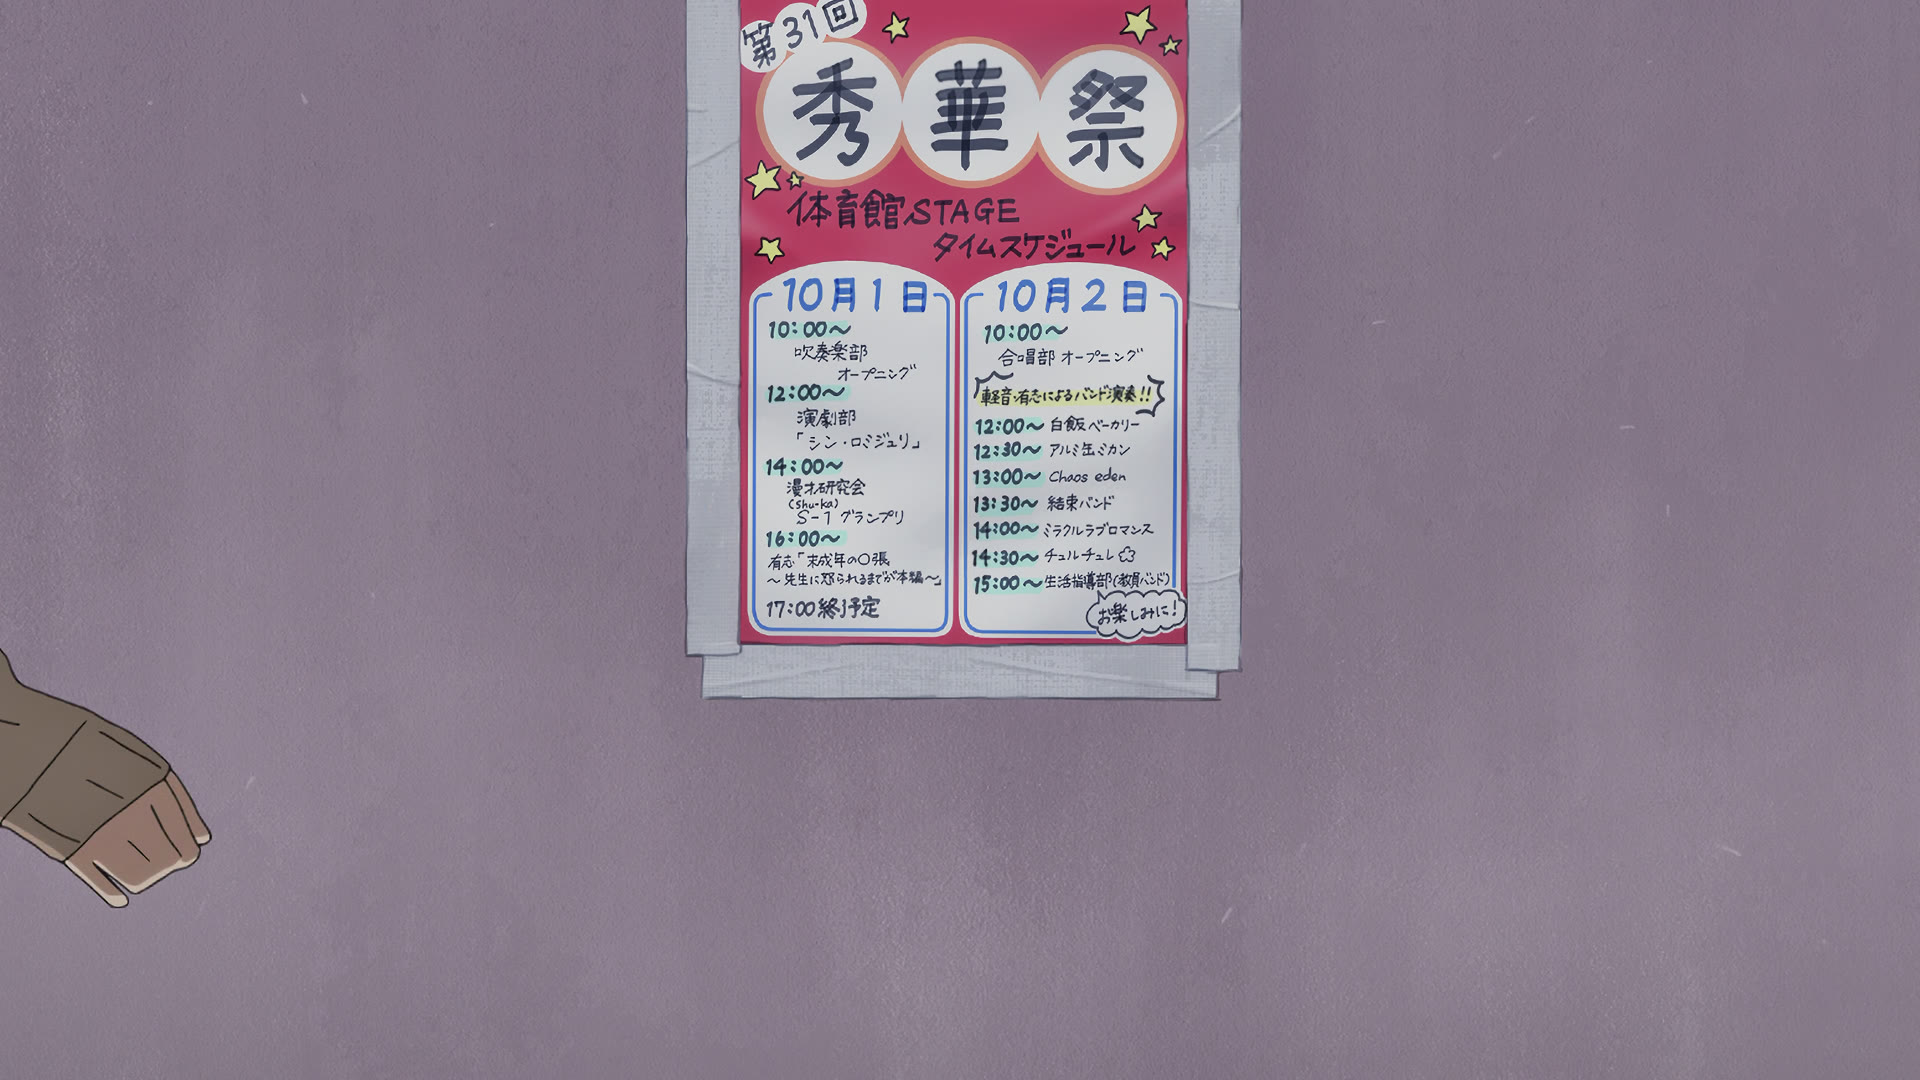 第31回
秀華祭
体育館STAGE
タイムスケジュール
10月1日
10:00〜
吹奏楽部
オープニング
12:00〜
演劇部
「シン・ロミジュリ」
14:00〜
漫才研究会
(shu-ka)
S-1グランプリ
16:00〜
有志「未成年の〇張
〜先生に怒られるまでが本編〜」
17:00終了予定
10月2日
10:00〜
合唱部 オープニング
軽音・有志によるバンド演奏!!
12:00〜 白飯ベーカリー
12:30〜 アルミ缶ミカン
13:00〜 Chaos eden
13:30〜 結束バンド
14:00〜 ミラクルラブロマンス
14:30〜 チュルチュレ
15:00〜 生活指導部(教員バンド)
お楽しみに!